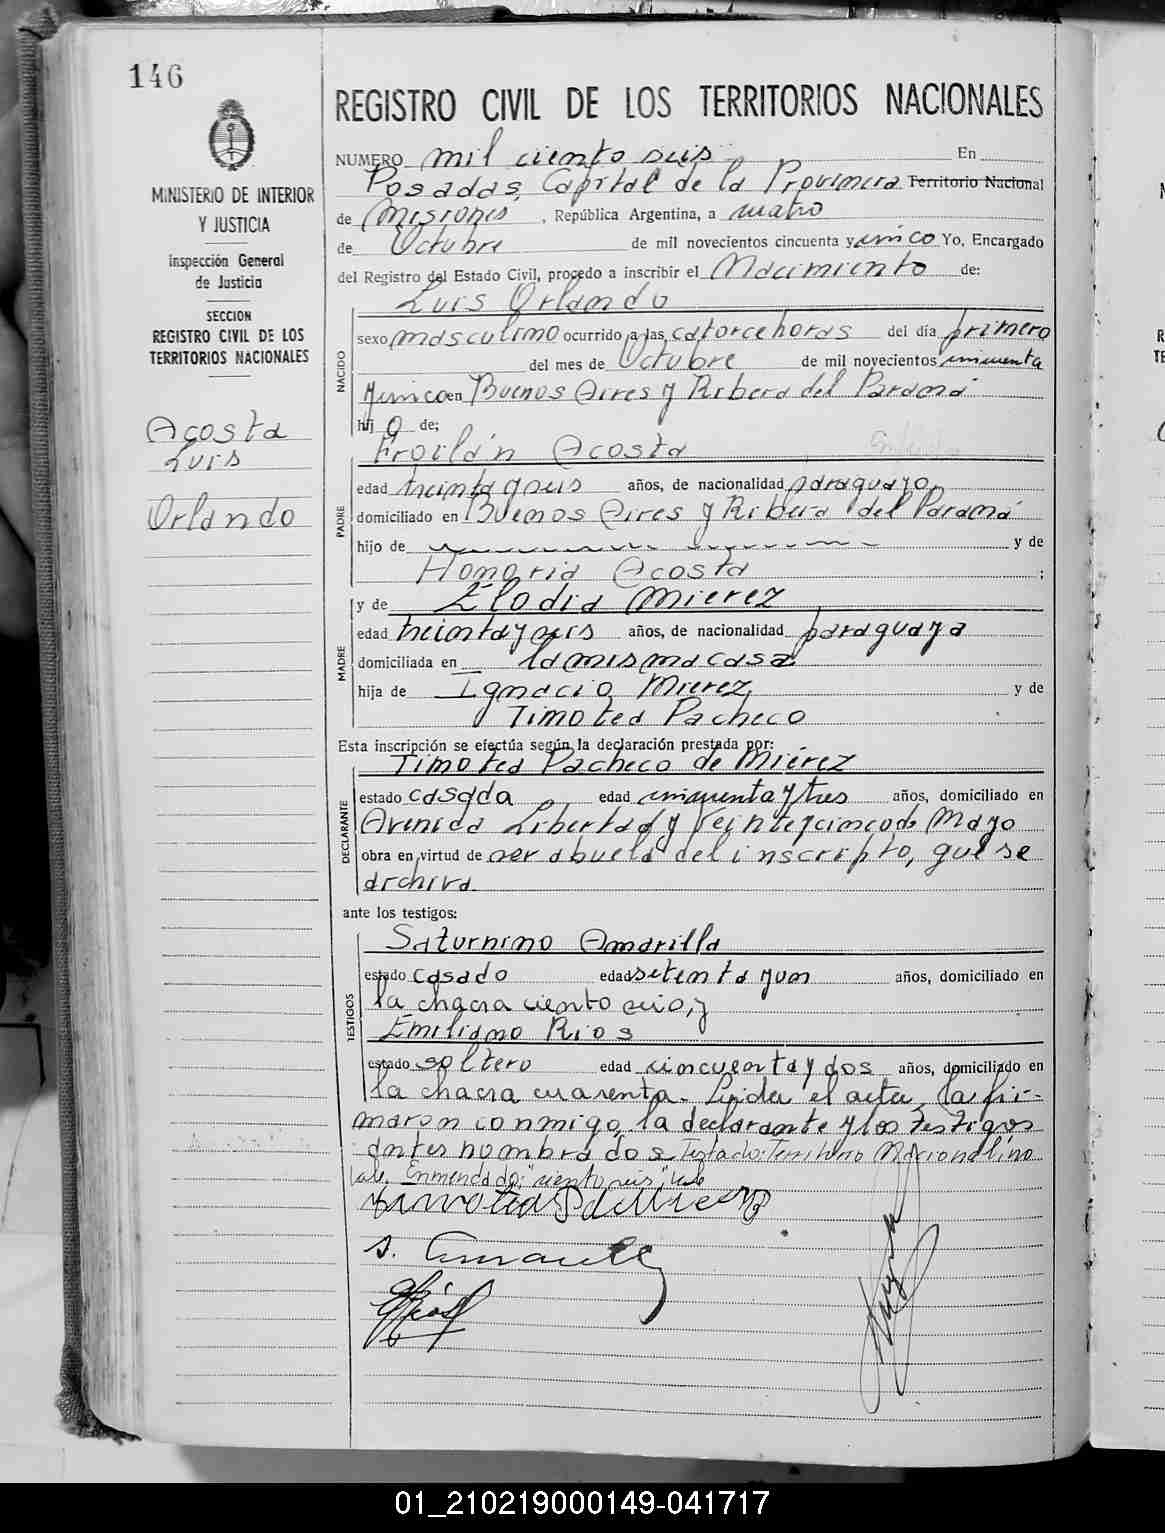 146
MINISTERIO DE INTERIOR
Y JUSTICIA
Inspección General
de Justicia
SECCION
REGISTRO CIVIL DE LOS
TERRITORIOS NACIONALES
Acosta
Luis
Orlando
REGISTRO CIVIL DE LOS TERRITORIOS NACIONALES
NUMERO mil ciento seis En
Posadas, Capital de la Provincia Territorio Nacional
de Misiones, República Argentina, a cuatro
de Octubre de mil novecientos cincuenta y cinco Yo, Encargado
del Registro del Estado Civil, procedo a inscribir el Nacimiento de:
Luis Orlando
NACIDO
sexo masculino ocurrido a las catorce horas del día primero
del mes de Octubre de mil novecientos cincuenta
y cinco en Buenos Aires y Ribera del Paraná
hij o de;
Froilán Acosta
PADRE
edad treinta y seis años, de nacionalidad paraguayo
domiciliado en Buenos Aires y Ribera del Paraná
hijo de y de
Honoria Acosta ;
y de Elodia Mierez
MADRE
edad treinta y seis años, de nacionalidad paraguaya
domiciliada en la misma casa
hija de Ignacio Mierez y de
Timotea Pacheco
Esta inscripción se efectúa según la declaración prestada por:
Timotea Pacheco de Miérez
DECLARANTE
estado casada edad cincuenta y tres años, domiciliado en
Avenida Libertad y Veinte y cinco de Mayo
obra en virtud de ser abuela del inscripto, que se
archiva
ante los testigos:
Saturnino Amarilla
TESTIGOS
estado casado edad setenta y un años, domiciliado en
la chacra ciento seis, y
Emiliano Rios
estado soltero edad cincuenta y dos años, domiciliado en
la chacra cuarenta. Leida el acta, la fir-
maron conmigo, la declarante y los testigos
antes nombrados. Testado: Territorio Nacional: no
vale. Enmendado: "ciento seis", vale
Timotea P de Mierez
S. Amarilla
01_210219000149-041717